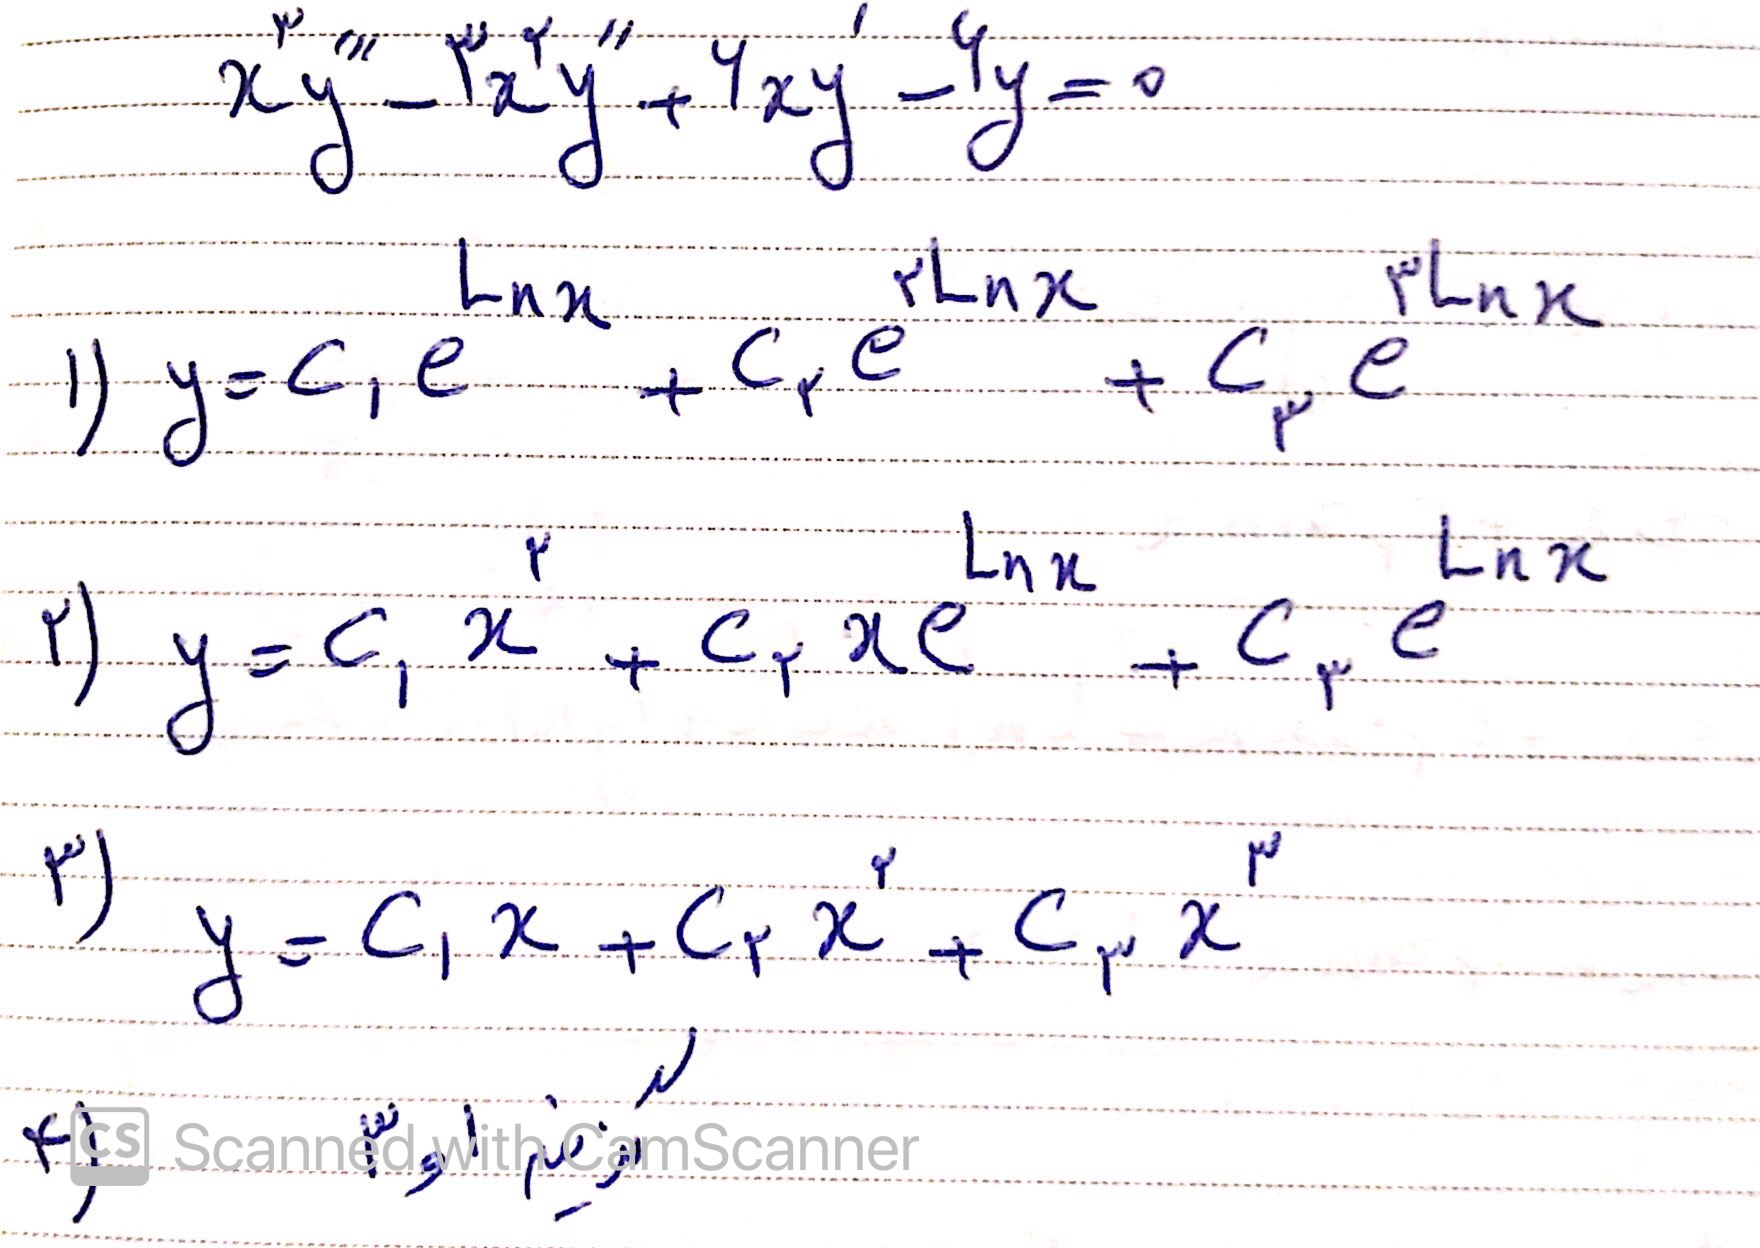 x³y‴ - ۳x²y″ + ۶xy′ - ۶y = ۰
۱) y = C₁ e^{Ln x} + C₂ e^{۲Ln x} + C₃ e^{۳Ln x}
۲) y = C₁ x² + C₂ x e^{Ln x} + C₃ e^{Ln x}
۳) y = C₁ x + C₂ x² + C₃ x³
۴) گزینه ۱ و ۳
CS Scanned with CamScanner